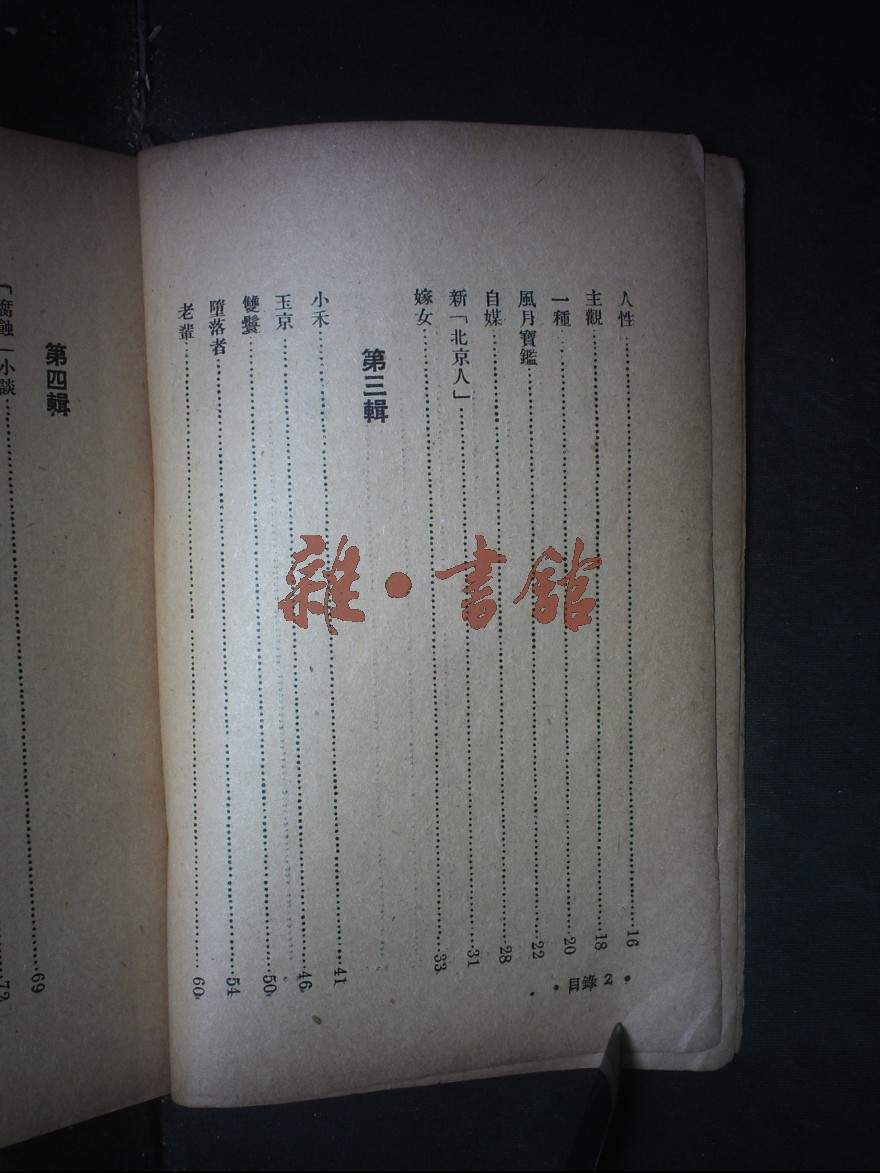 人性 16
主觀 18
一種 20
風月寶鑑 22
自媒 28
新「北京人」 31
嫁女 33
第三輯
小禾 41
玉京 46
雙鬟 50
墮落者 54
老輩 60
目錄 2
第四輯
「腐蝕」小談 69
72
雜·書館